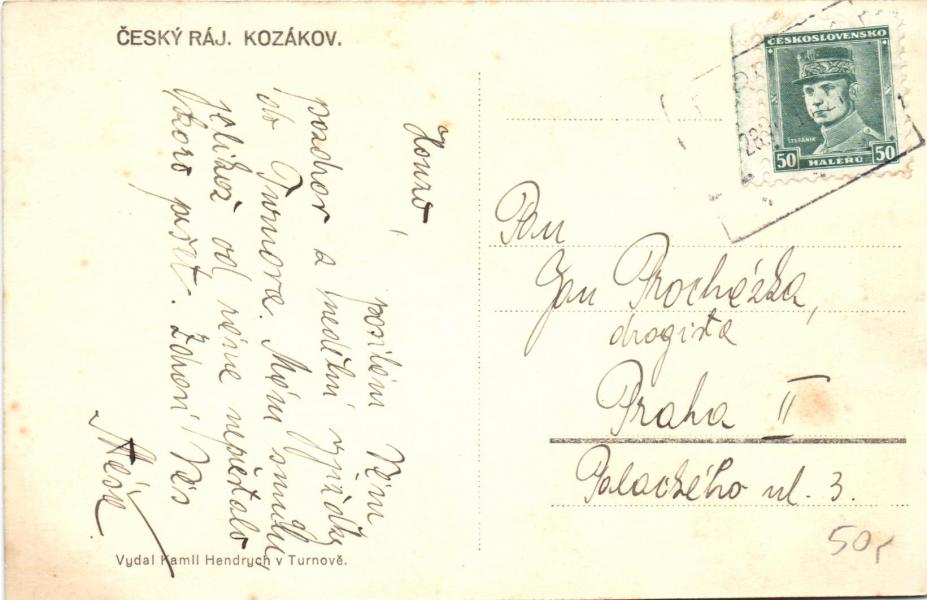 ČESKÝ RÁJ. KOZÁKOV.
Honzo,
posílám Vám
pozdrav z nedělní vyjížďky
do Turnova. Mám smůlu,
jelikož od rána nepřestalo
skoro pršet. Zdraví Vás
Vydal Kamil Hendrych v Turnově.
ČESKOSLOVENSKO
ŠTEFÁNIK
50 HALÉŘŮ 50
Pan
Jan Procházka,
drogista
Praha II
Palackého ul. 3.
50,-